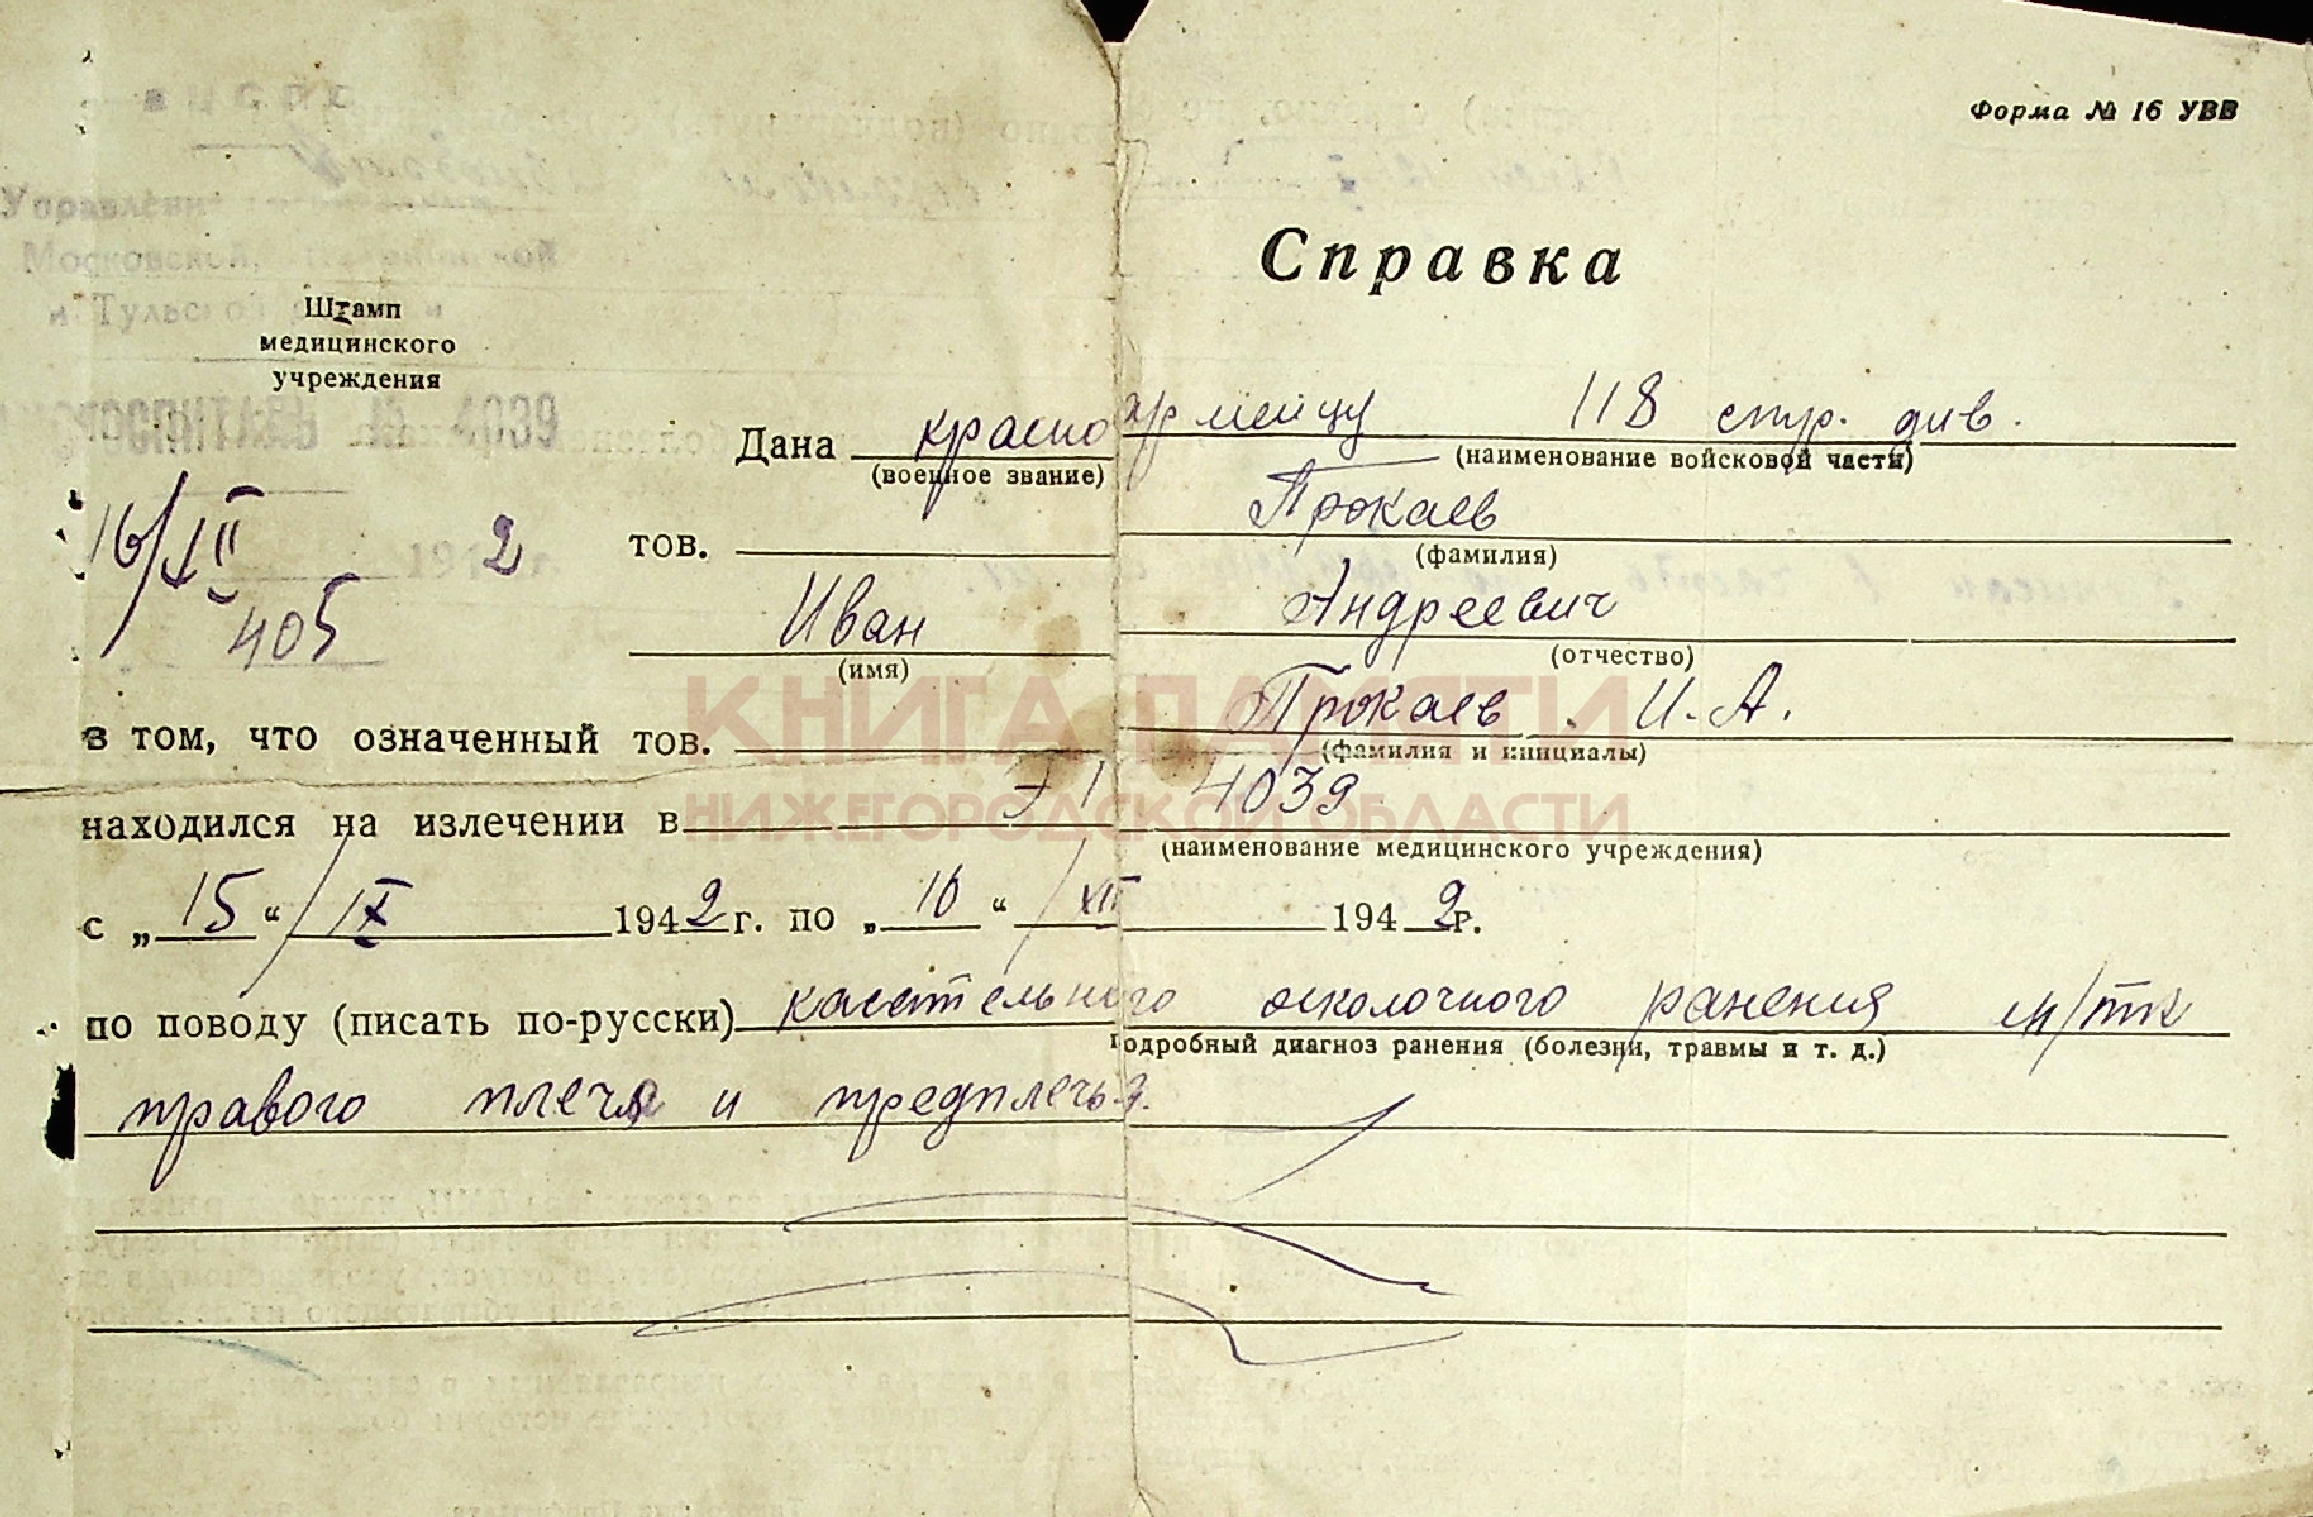 Форма № 16 УВВ
Управлени
Московской,
и Тульской
Справка
Штамп
медицинского
учреждения
ГОСПИТАЛЬ № 4039
Дана красноармейцу 118 стр. див.
(военное звание) (наименование войсковой части)
16/XII 194 2
405
тов. Прокаев
(фамилия)
Иван Андреевич
(имя) (отчество)
в том, что означенный тов. Прокаев И. А.
(фамилия и инициалы)
КНИГА ПАМЯТИ
НИЖЕГОРОДСКОЙ ОБЛАСТИ
находился на излечении в ЭГ 4039
(наименование медицинского учреждения)
с „15“ / IX 1942 г. по „16“ / XII 1942 г.
по поводу (писать по-русски) касательного осколочного ранения м/тк
подробный диагноз ранения (болезни, травмы и т. д.)
правого плеча и предплечья.